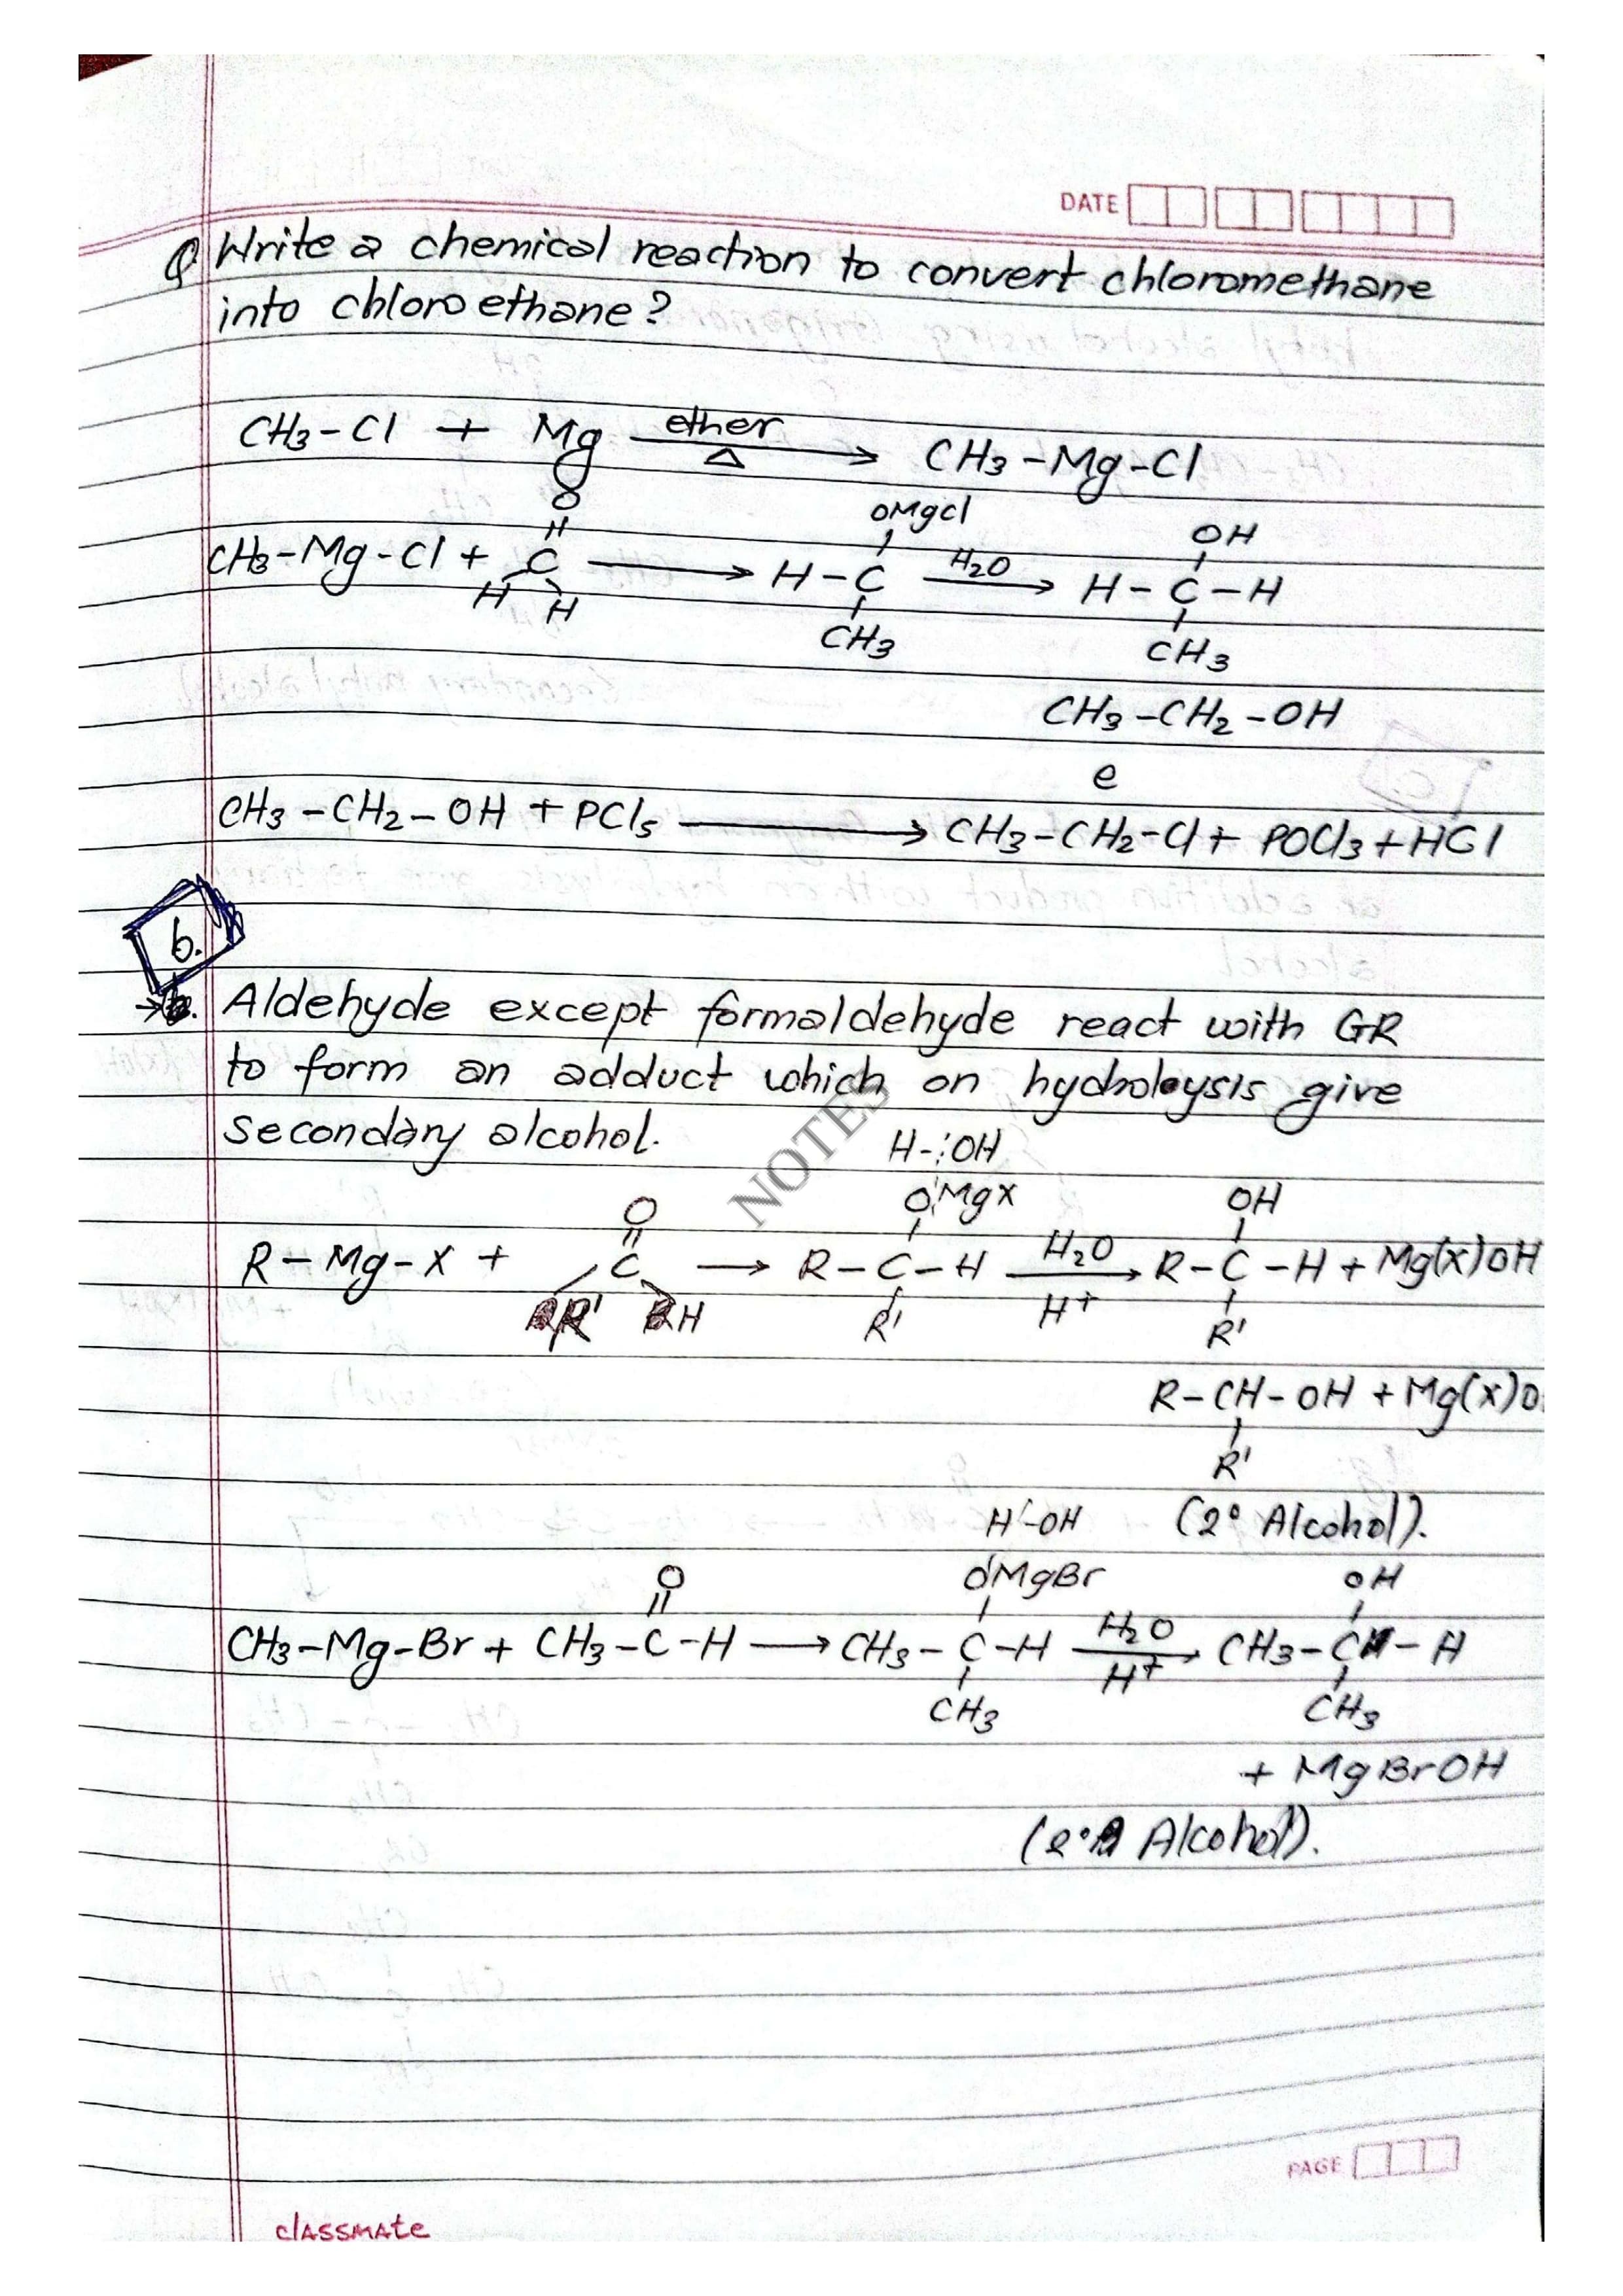 DATE
Q Write a chemical reaction to convert chloromethane
into chloroethane?
CH3-Cl + Mg ether Δ → CH3-Mg-Cl
O OMgCl OH
|| | |
CH3-Mg-Cl + C → H-C H2O → H-C-H
H H CH3 CH3
CH3-CH2-OH
e
CH3-CH2-OH + PCl5 → CH3-CH2-Cl + POCl3 + HCl
b.
→ Aldehyde except formaldehyde react with GR
to form an adduct which on hydroloysis give
secondary alcohol.
NOTES
H-OH
O OMgX OH
R-Mg-X + C → R-C-H H2O H+ → R-C-H + Mg(X)OH
R' H R' R'
R-CH-OH + Mg(X)O
R'
H-OH (2° Alcohol).
O OMgBr OH
CH3-Mg-Br + CH3-C-H → CH3-C-H H2O H+ → CH3-C-H
CH3 CH3
+ MgBrOH
(2° Alcohol).
PAGE
classmate